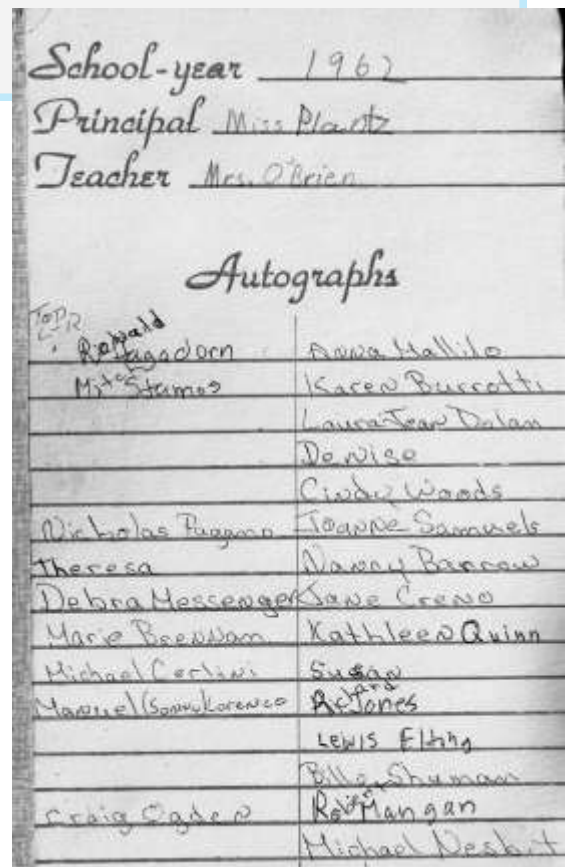 School-year 1962
Principal Miss Plantz
Teacher Mrs. O'Brien
Autographs
TOP
L-R
Ronald Hagadorn
Stamos
Nicholas Pagano
Theresa
Debra Messenger
Marie Brennam
Michael Cerlini
Manuel (Sonny) Lorenzo
Craig Ogden
Anna Mallilo
Karen Burrotti
Laura Jean Dolan
Denise
Cindy Woods
Joanne Samuels
Nancy Barrow
Jane Creno
Kathleen Quinn
Susan
Richard Jones
Lewis Elting
Billy Shuman
Mangan
Michael Nesbit